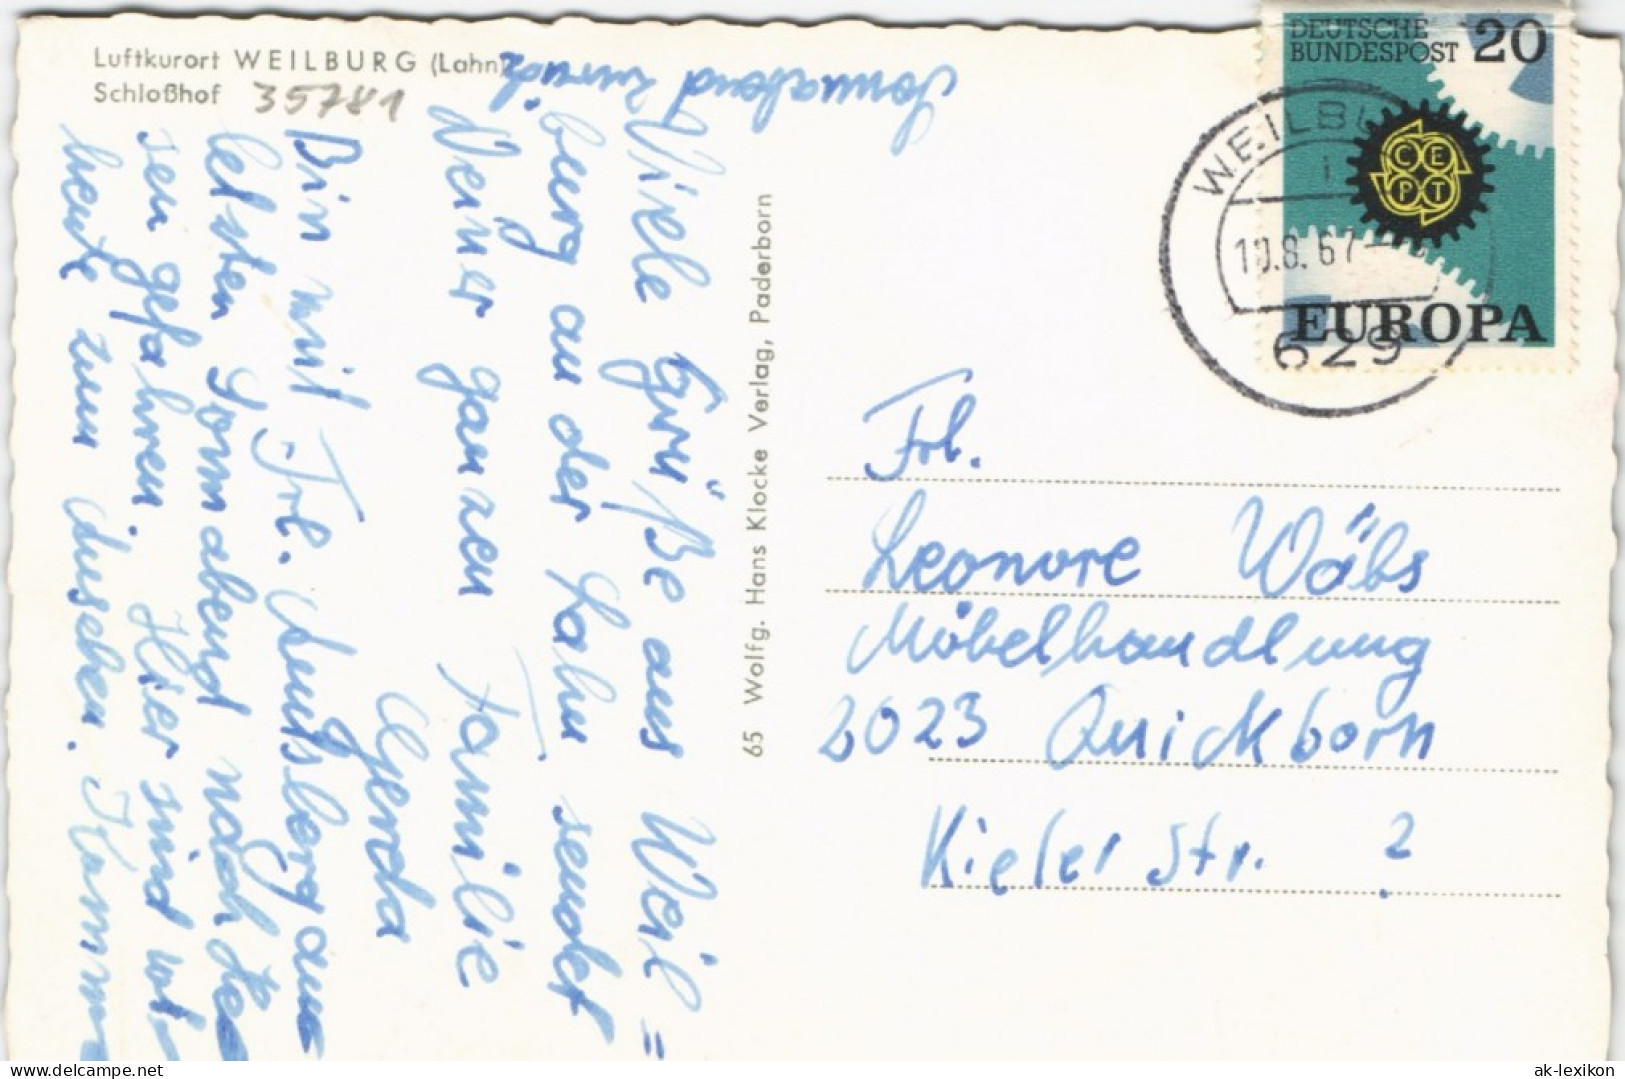 Luftkurort WEILBURG (Lahn)
Schloßhof 35781
DEUTSCHE
BUNDESPOST 20
CEPT
EUROPA
10.8.67
629
65 Wolfg. Hans Klocke Verlag, Paderborn
Viele Grüße aus Weil=
burg an der Lahn sendet
Deiner ganzen Familie
Gerda
Bin mit Frl.
letzten Sonnabend nach
sen gefahren. Hier sind wir
heute zum Ansehen. Komme
Sonnabend zurück
Frl.
Leonore Wäbs
Möbelhandlung
2023 Quickborn
Kieler Str. ?
delcampe.net
ak-lexikon